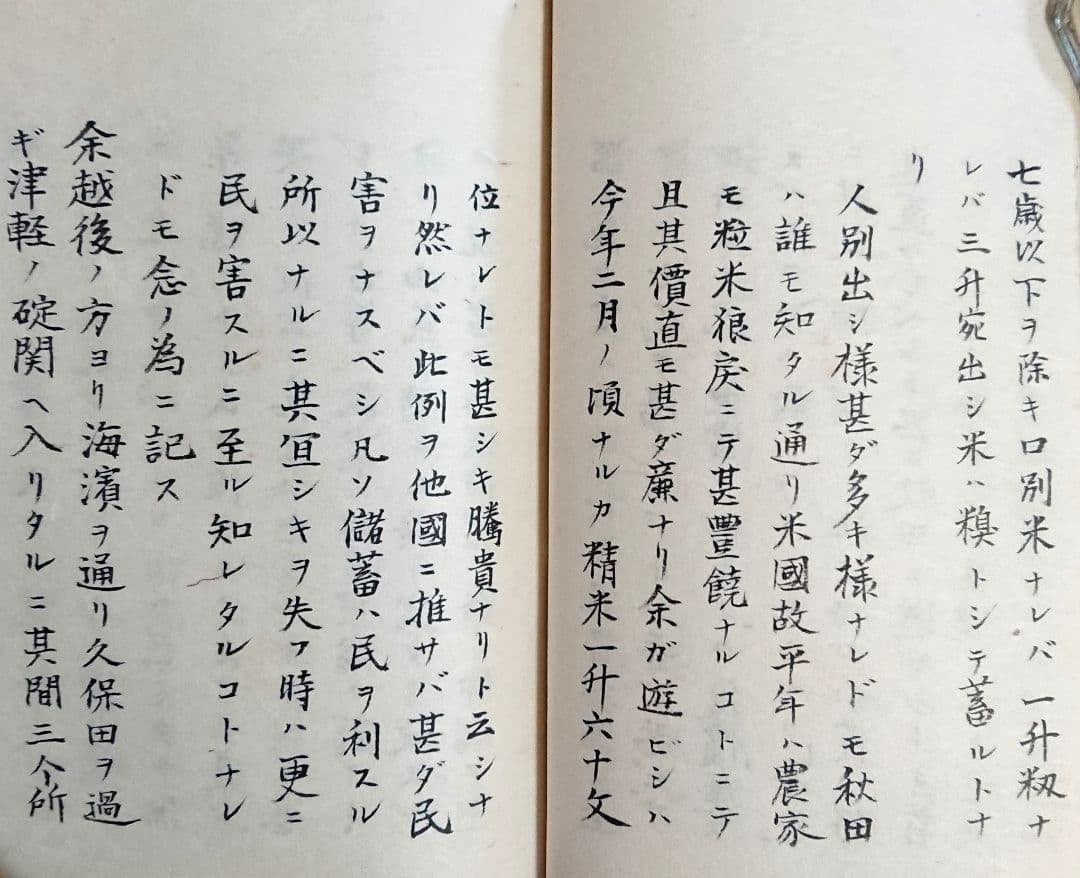 七歳以下ヲ除キ口別米ナレバ一升籾ナ
レバ三升宛出シ米ハ糗トシテ蓄ルトナ
リ
人別出シ様甚ダ多キ様ナレドモ秋田
ハ誰モ知タル通リ米國故平年ハ農家
モ粒米狼戻ニテ甚豊饒ナルコトニテ
且其價直モ甚ダ廉ナリ余ガ遊ビシハ
今年二月ノ頃ナルカ精米一升六十文
位ナレトモ甚シキ騰貴ナリト云シナ
リ然レバ此例ヲ他國ニ推サバ甚ダ民
害ヲナスベシ凡ソ儲蓄ハ民ヲ利スル
所以ナルニ其冝シキヲ失フ時ハ更ニ
民ヲ害スルニ至ル知レタルコトナレ
ドモ念ノ為ニ記ス
余越後ノ方ヨリ海濱ヲ通リ久保田ヲ過
ギ津軽ノ碇関ヘ入リタルニ其間三个所